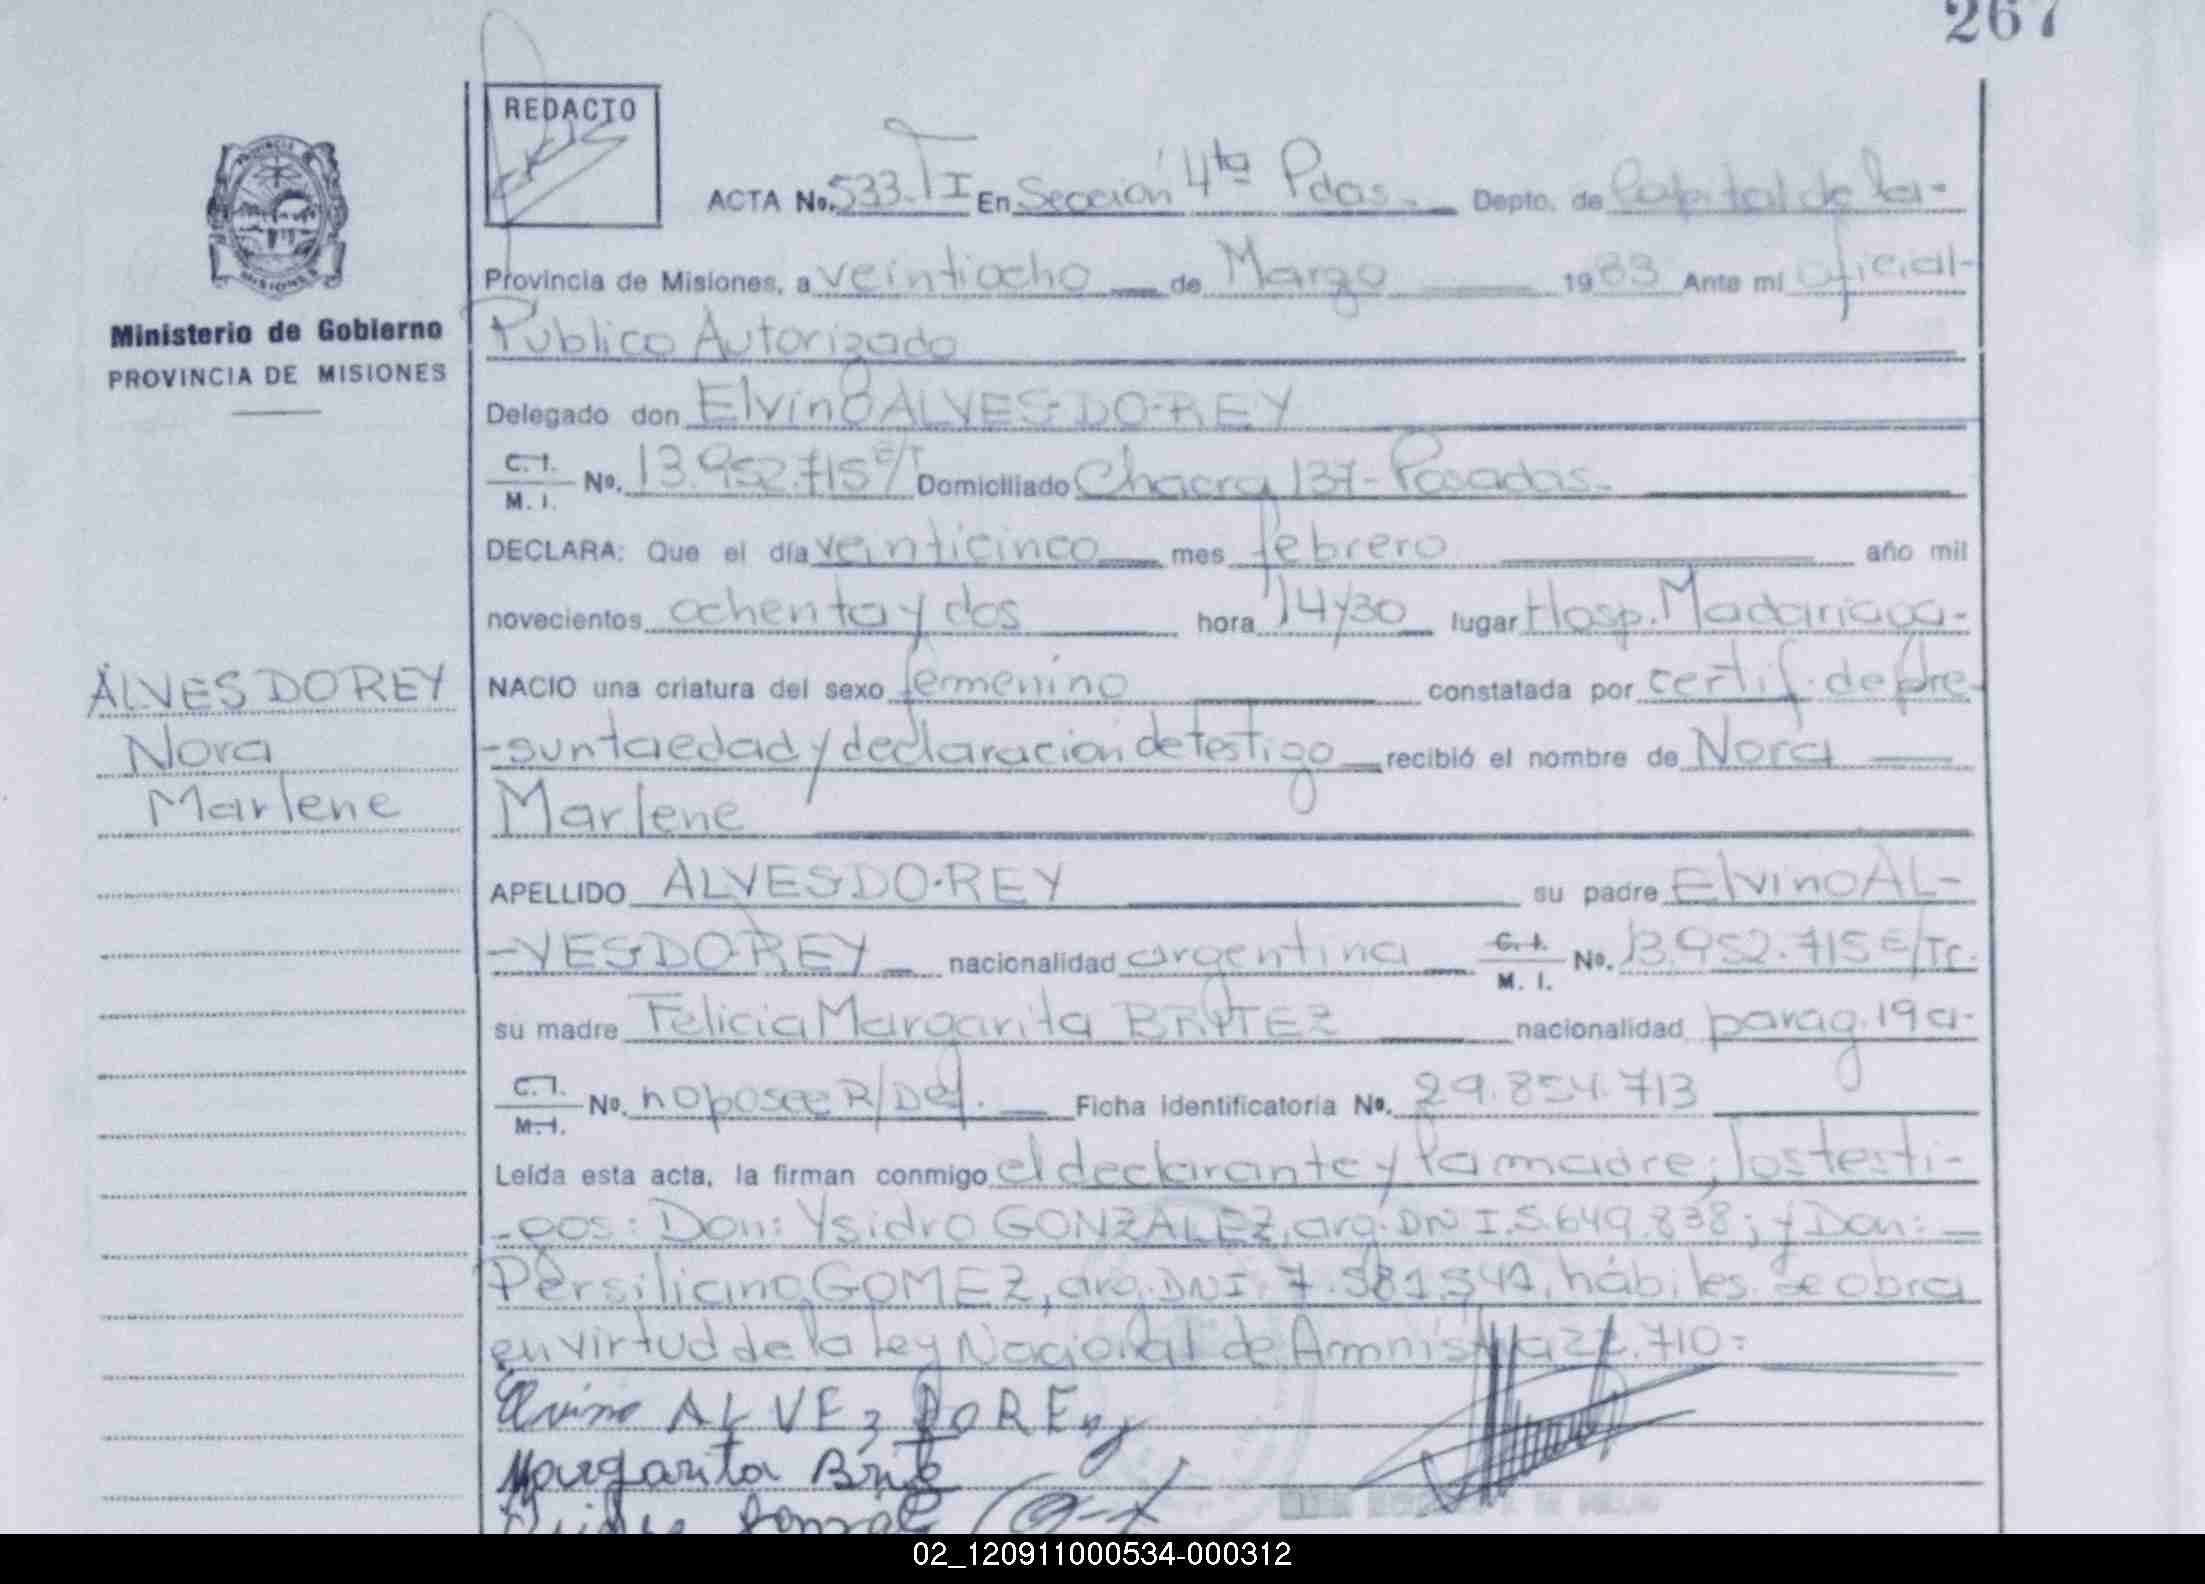 267
REDACTO
ACTA No. 533. TI En Sección 4ta Pdas. Depto. de Capital de la-
Provincia de Misiones, a veintiocho de Marzo 1983 Ante mi oficial-
Publico Autorizado
Ministerio de Gobierno
PROVINCIA DE MISIONES
Delegado don Elvino ALVES-DO-REY
C. I. M. I. No. 13.952.715 E/T Domiciliado Chacra 137-Posadas-
DECLARA: Que el día veinticinco mes febrero año mil
novecientos ochenta y dos hora 14y30 lugar Hosp. Madariaga-
ALVES DO REY
Nora
Marlene
NACIO una criatura del sexo femenino constatada por certif. de pre-
-sunta edad y declaracion de testigo recibió el nombre de Nora
Marlene
APELLIDO ALVES-DO-REY su padre Elvino AL-
-VES-DO-REY nacionalidad argentina C. I. M. I. No. 13.952.715 E/Tr.
su madre Felicia Margarita BRITEZ nacionalidad parag. 19 a-
C. I. M. I. No. no posee R/Def. Ficha identificatoria No. 29.854.713
Leída esta acta, la firman conmigo el declarante y la madre; los testi-
-gos: Don: Ysidro GONZALEZ, arg. DNI. 5.649.838; y Don:
Persiliano GOMEZ, arg. DNI. 7.581.541, hábiles. se obra
en virtud de la Ley Nacional de Amnistia 22.710=
Elvino ALVEz DOREy
Margarita
02_120911000534-000312